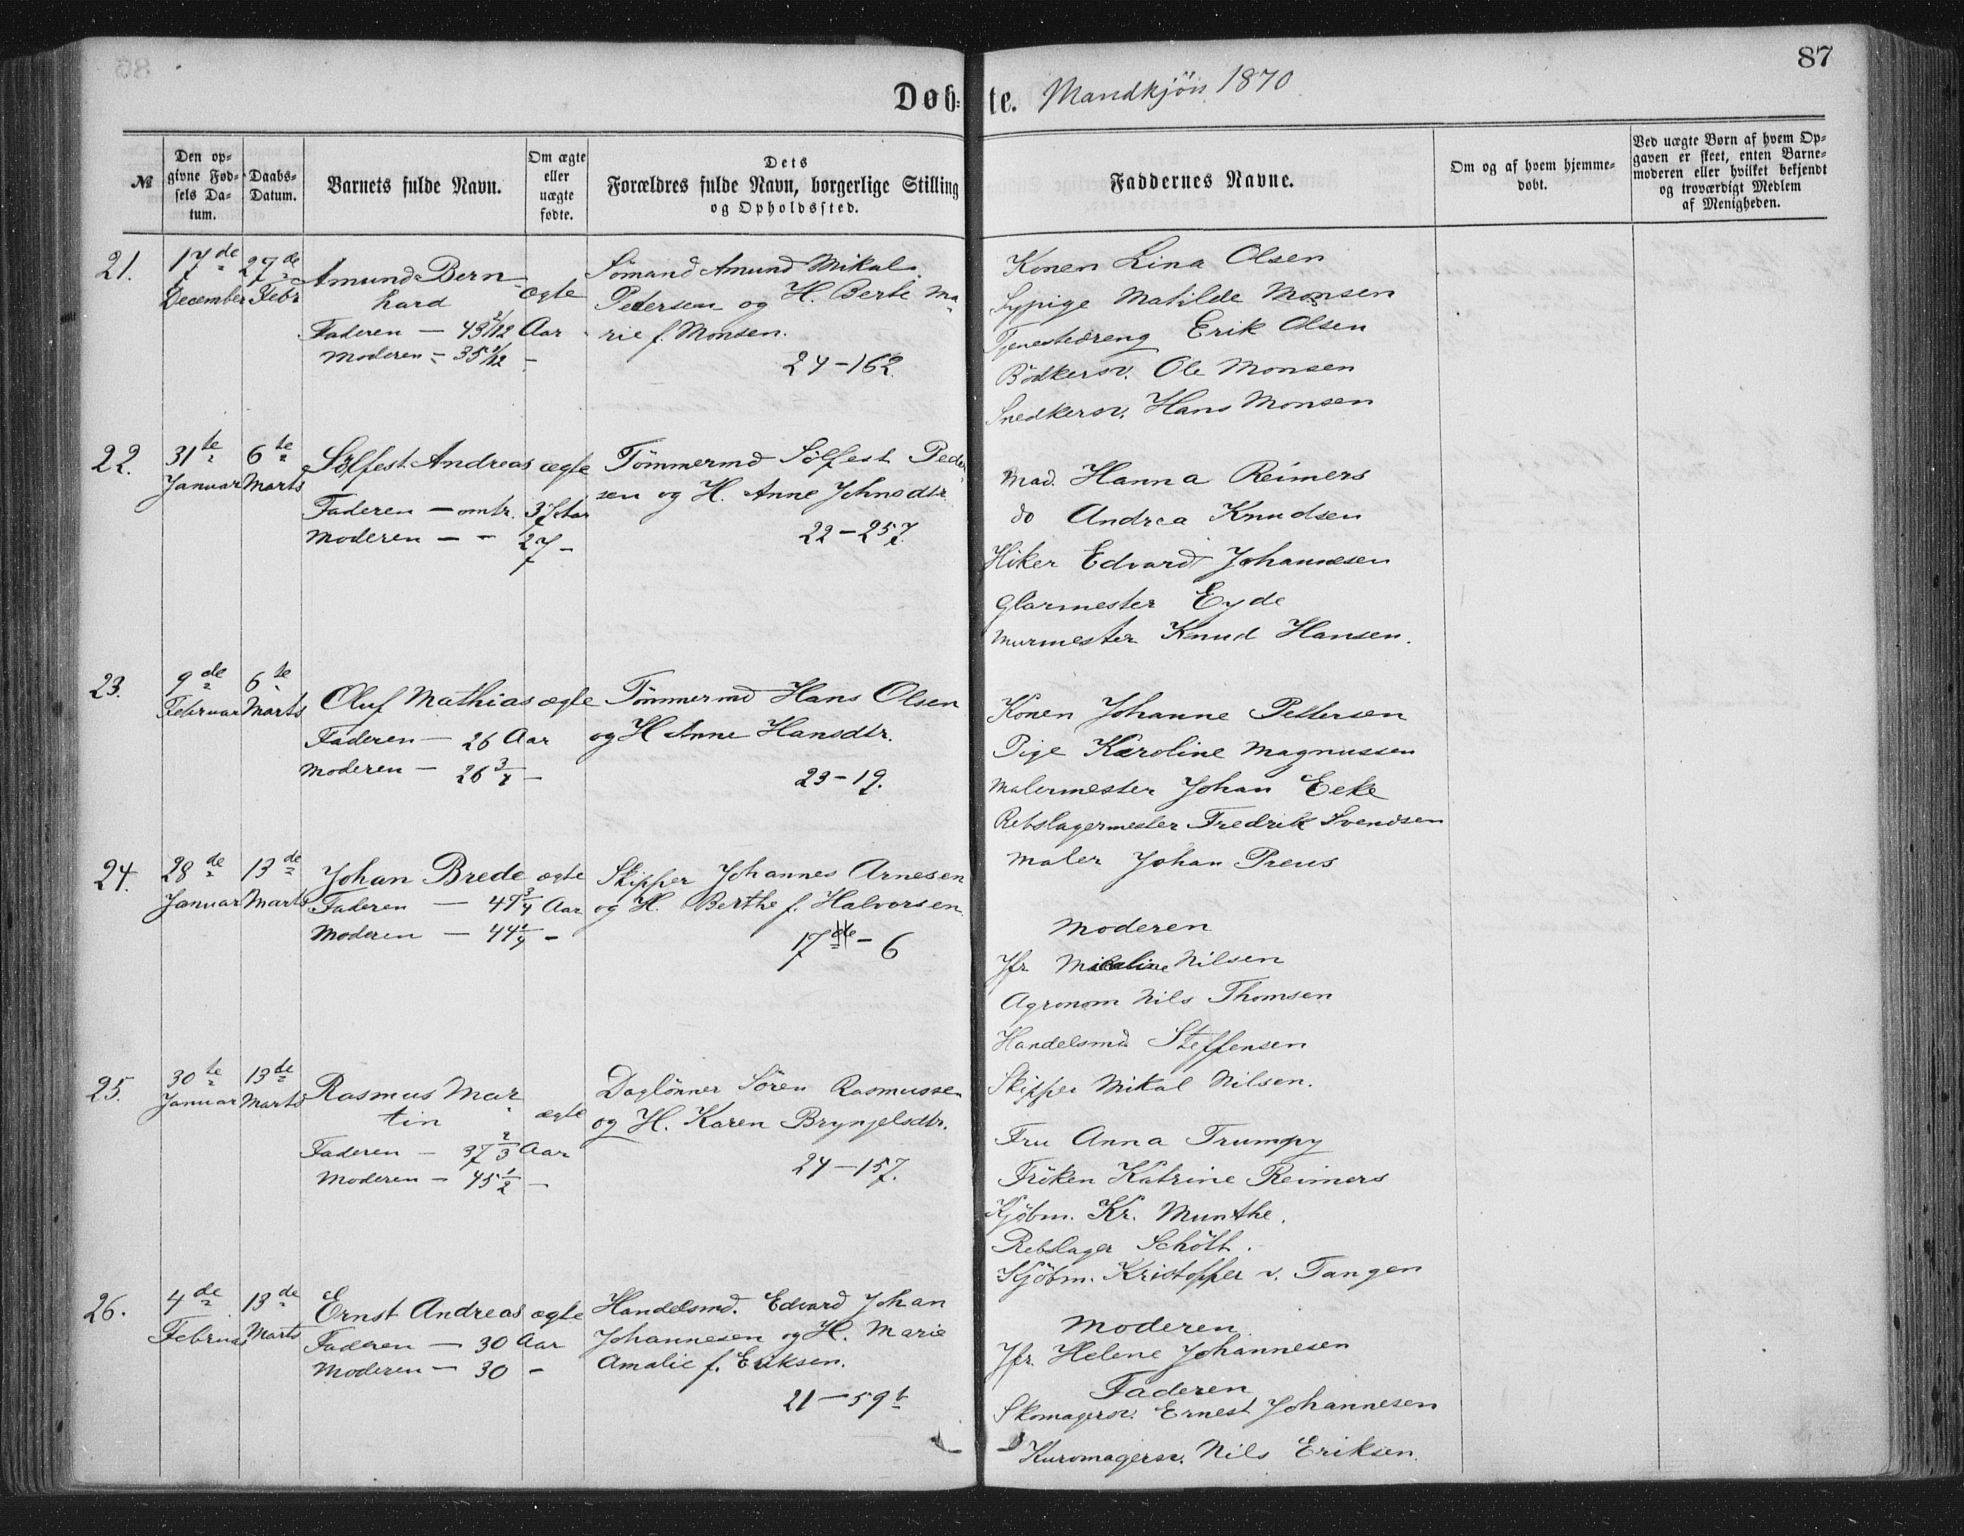 87
Døb=te. Mandkjön 1870
№
Den op=
givne Fød=
sels Da=
tum.
Daabs=
Datum.
Barnets fulde Navn.
Om ægte
eller
uægte
fødte.
Dets
Forældres fulde Navn, borgerlige Stilling
og Opholdssted.
Faddernes Navne.
Om og af hvem hjemme=
døbt.
Ved uægte Børn af hvem Op=
gaven er skeet, enten Barne=
moderen eller hvilket bekjendt
og troværdigt Medlem
af Menigheden.
21. 17de December 27de Febr
Amund Bern-
hard
ægte
Faderen — 43 1/12 Aar
Moderen — 35 1/12 —
Sömand Amund Mikal
Pedersen og H. Berte Ma-
rie f. Monsen.
24-162.
Konen Lina Olsen
Sypige Matilde Monsen
Tjenestedreng Erik Olsen
Bödkersv. Ole Monsen
Snedkersv. Hans Monsen
22. 31te Januar 6te Marts
Sölfest Andreas ægte
Faderen — omtr. 37 Aar
Moderen — - 27 —
Tömmermd Sölfest Peder-
sen og H. Anne Johnsdtr.
22-257.
Mad. Hanna Reimers
do Andrea Knudsen
Hiker Edvard Johannesen
Glarmester Eyde
Murmester Knud Hansen.
23. 9de Februar 6te Marts
Oluf Mathias ægte
Faderen — 26 Aar
Moderen — 26 3/4 —
Tömmermd Hans Olsen
og H Anne Hansdtr.
23-19.
Konen Johanne Pettersen
Pige Karoline Magnussen
Malermester Johan Eeke
Rebslagermester Fredrik Svendsen
Maler Johan Preus
24. 28de Januar 13de Marts
Johan Brede ægte
Faderen — 49 3/4 Aar
Moderen — 44 1/4 —
Skipper Johannes Arnesen
og H. Berthe f. Halvorsen.
17de - 6
Moderen
Jfr Nilsen
Agronom Nils Thomsen
Handelsmd Steffensen
Skipper Mikal Nilsen.
25. 30te Januar 13de Marts
Rasmus Mar-
tin
ægte
Faderen — 37 2/3 Aar
Moderen — 45 1/2 —
Daglönner Sören Rasmussen
og H. Karen Brynjelsdtr.
24-157.
Fru Anna Trumpy
Fröken Katrine Reimers
Kjöbm. Kr. Munthe.
Rebslager Schött.
Kjöbm. Kristoffer v. Tangen
26. 4de Februar 13de Marts
Ernst Andreas ægte
Faderen — 30 Aar
Moderen — 30 —
Handelsmd. Edvard Johan
Johannesen og H. Marie
Amalie f. Eriksen.
21-59b
Moderen.
Jfr. Helene Johannesen
Faderen
Skomagersv. Ernest Johannesen
Kurvmagersv. Nils Eriksen.